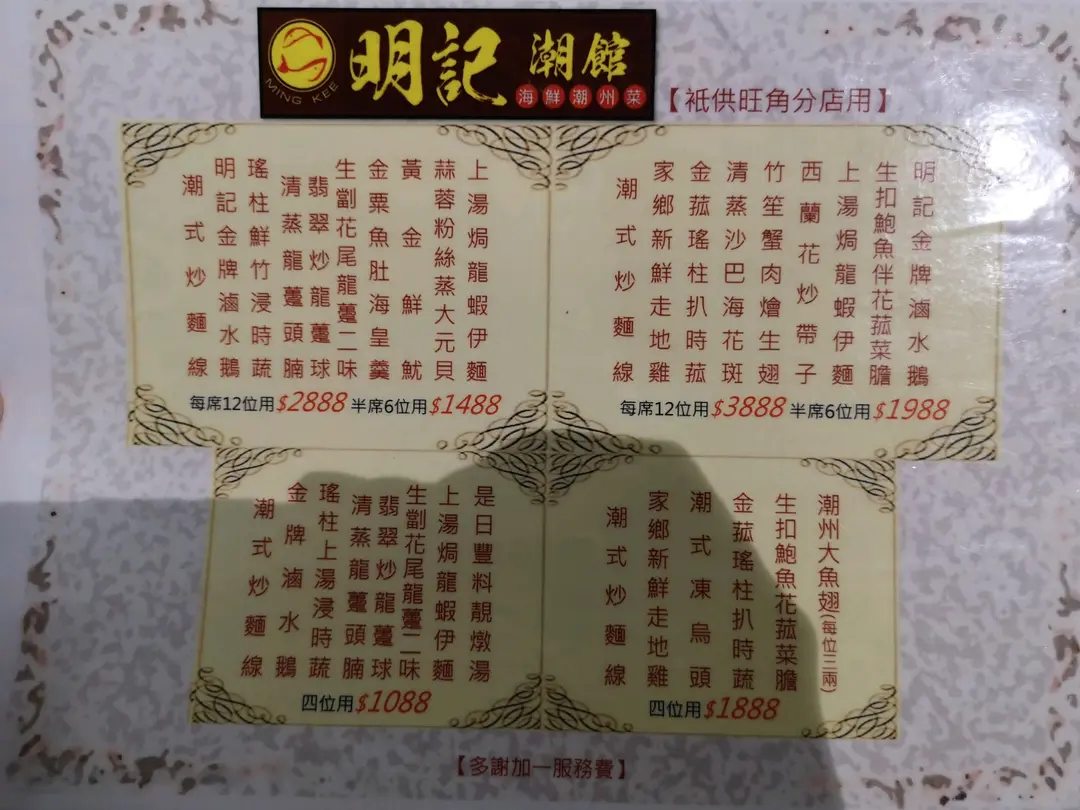 明記潮館
海鮮潮州菜
MING KEE
【祇供旺角分店用】
上湯焗龍蝦伊麵
蒜蓉粉絲蒸大元貝
黃金鮮魷
金粟魚肚海皇羹
生劏花尾龍躉二味
翡翠炒龍躉球
清蒸龍躉頭腩
瑤柱鮮竹浸時蔬
明記金牌滷水鵝
潮式炒麵線
每席12位用$2888 半席6位用$1488
明記金牌滷水鵝
生扣鮑魚伴花菰菜膽
上湯焗龍蝦伊麵
西蘭花炒帶子
竹笙蟹肉燴生翅
清蒸沙巴海花斑
金菰瑤柱扒時菰
家鄉新鮮走地雞
潮式炒麵線
每席12位用$3888 半席6位用$1988
是日豐料靚燉湯
上湯焗龍蝦伊麵
生劏花尾龍躉二味
翡翠炒龍躉球
清蒸龍躉頭腩
瑤柱上湯浸時蔬
金牌滷水鵝
潮式炒麵線
四位用$1088
潮州大魚翅(每位三兩)
生扣鮑魚花菰菜膽
金菰瑤柱扒時蔬
潮式凍烏頭
家鄉新鮮走地雞
潮式炒麵線
四位用$1888
【多謝加一服務費】